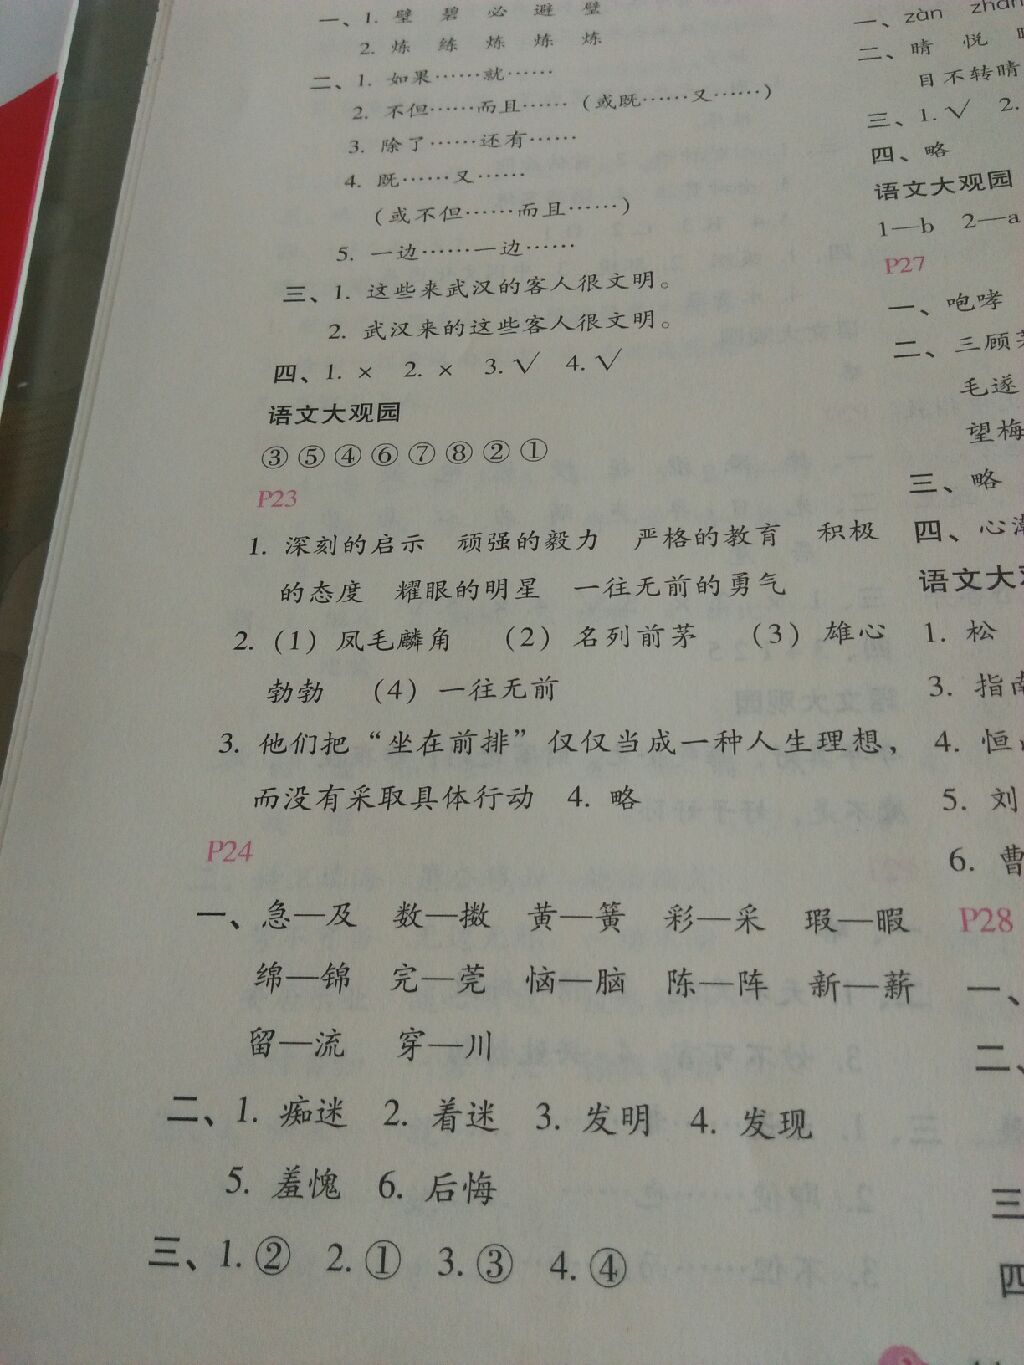 一、1. 璧 碧 必 避 璧
2. 炼 练 炼 炼 炼
二、1. 如果……就……
2. 不但……而且……（或既……又……）
3. 除了……还有……
4. 既……又……
（或不但……而且……）
5. 一边……一边……
三、1. 这些来武汉的客人很文明。
2. 武汉来的这些客人很文明。
四、1. × 2. × 3. √ 4. √
语文大观园
③ ⑤ ④ ⑥ ⑦ ⑧ ② ①
P23
1. 深刻的启示 顽强的毅力 严格的教育 积极
的态度 耀眼的明星 一往无前的勇气
2.（1）凤毛麟角 （2）名列前茅 （3）雄心
勃勃 （4）一往无前
3. 他们把“坐在前排”仅仅当成一种人生理想，
而没有采取具体行动 4. 略
P24
一、急—及 数—擞 黄—簧 彩—采 瑕—暇
绵—锦 完—莞 恼—脑 陈—阵 新—薪
留—流 穿—川
二、1. 痴迷 2. 着迷 3. 发明 4. 发现
5. 羞愧 6. 后悔
三、1. ② 2. ① 3. ③ 4. ④
一、zàn
二、晴 悦
目不转睛
三、1. √ 2.
四、略
语文大观园
1—b 2—a
P27
一、咆哮
二、三顾
毛遂
望梅
三、略
四、心
语文大
1. 松
3. 指南
4. 恒
5. 刘
6. 曹
P28
一、
二、
三
四